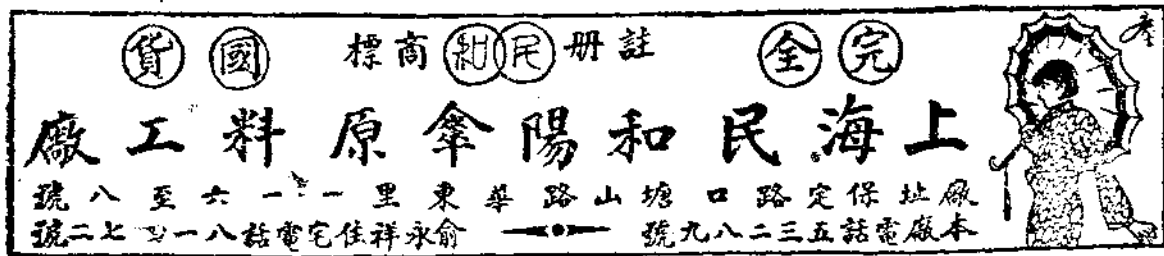 完全 註册民和商標 國貨
上海民和陽傘原料工廠
廠址保定路口塘山路華東里一一六至八號
本廠電話五三二八九號 俞永祥住宅電話八一七二號